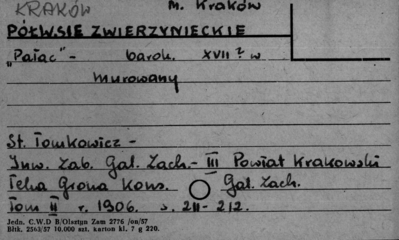 KRAKÓW m. Kraków
PÓŁWSIE ZWIERZYNIECKIE
„Pałac" - barok. XVII ? w
murowany
St. Tomkowicz -
Inw. Zab. Gal. Zach. - III Powiat Krakowski
Teka Grona Kons. Gal. Zach.
Tom II r. 1906. s. 211-212.
Jedn. C.W.D B/Olsztyn Zam 2776 /on/57
Błtk. 2563/57 10.000 szt. karton kl. 7 g 220.